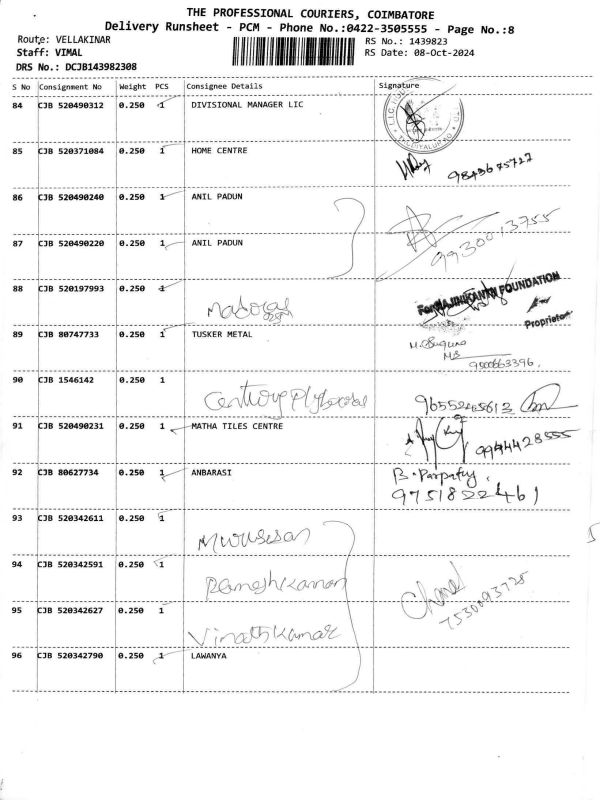 THE PROFESSIONAL COURIERS, COIMBATORE
Delivery Runsheet - PCM - Phone No.:0422-3505555 - Page No.:8
Route: VELLAKINAR
RS No.: 1439823
Staff: VIMAL
RS Date: 08-Oct-2024
DRS No.: DCJB143982308
S No Consignment No Weight PCS Consignee Details Signature
84 CJB 520490312 0.250 1 DIVISIONAL MANAGER LIC
85 CJB 520371084 0.250 1 HOME CENTRE
9843675727
86 CJB 520490240 0.250 1 ANIL PADUN
87 CJB 520490220 0.250 1 ANIL PADUN
9930013755
88 CJB 520197993 0.250 1
For RAJINIKANTH FOUNDATION
Proprietor
89 CJB 80747733 0.250 1 TUSKER METAL
90 CJB 1546142 0.250 1
91 CJB 520490231 0.250 1 MATHA TILES CENTRE
92 CJB 80627734 0.250 1 ANBARASI
9751822461
93 CJB 520342611 0.250 1
94 CJB 520342591 0.250 1
95 CJB 520342627 0.250 1
7530093725
96 CJB 520342790 0.250 1 LAWANYA